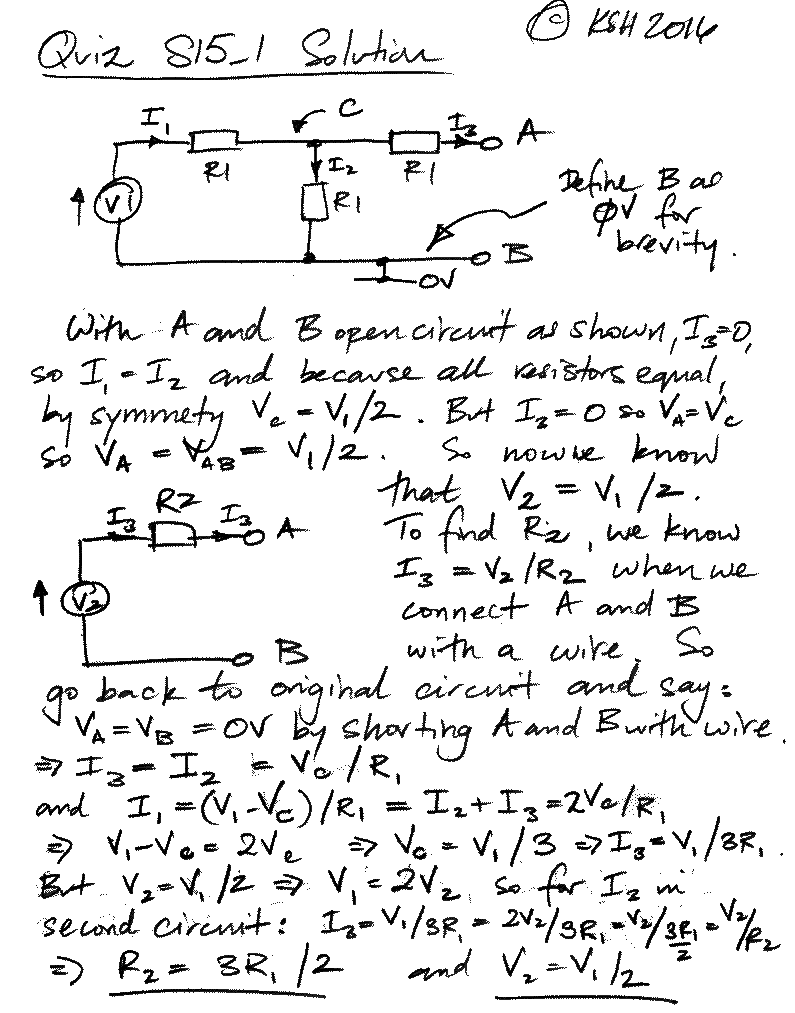 © KSH 2016
Quiz S15_1 Solution
I1 C I3 A
R1 I2 R1
V1 R1
Define B as
0V for
brevity.
B
0V
With A and B open circuit as shown, I3=0,
so I1 = I2 and because all resistors equal,
by symmety Vc = V1/2. But I3 = 0 so VA=Vc
so VA = VAB = V1/2. So now we know
that V2 = V1/2.
R2
I3 I3 A
V2
B
To find R2, we know
I3 = V2/R2 when we
connect A and B
with a wire. So
go back to original circuit and say:
VA = VB = 0V by shorting A and B with wire.
⇒ I3 = I2 = Vc/R1
and I1 = (V1-Vc)/R1 = I2+I3 = 2Vc/R1
⇒ V1-Vc = 2Vc ⇒ Vc = V1/3 ⇒ I3 = V1/3R1.
But V2=V1/2 ⇒ V1 = 2V2 so for I3 in
second circuit: I3 = V1/3R1 = 2V2/3R1 = V2/3R1/2 = V2/R2
⇒ R2 = 3R1/2 and V2 = V1/2